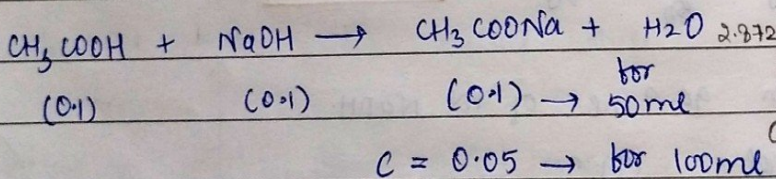 CH3COOH + NaOH → CH3COONa + H2O 2.872
(0.1) (0.1) (0.1) → for 50ml
C = 0.05 → for 100ml